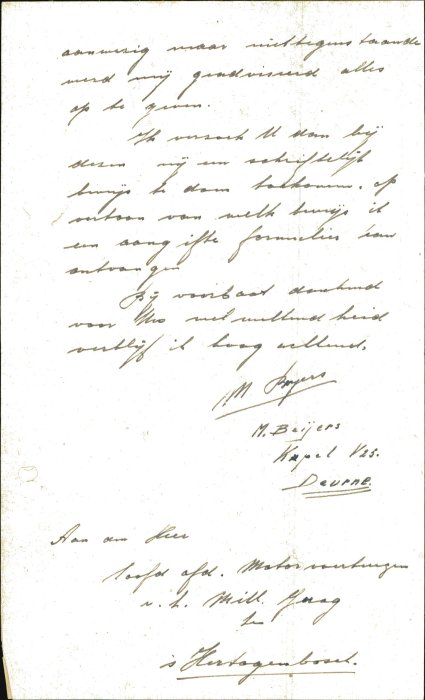 aanwezig maar niettegenstaande
werd mij geadviseerd alles
op te geven.
Ik verzoek U dan bij
dezen mij een schriftelijk
bewijs te doen toekomen. op
vertoon van welk bewijs ik
een aangifte formulier kan
ontvangen
Bij voorbaat dankend
voor Uw welwillendheid
verblijf ik hoog achtend.
M Beijers
M. Beijers
Kapel V25.
Deurne.
Aan den Heer
Hoofd afd. Motorvoertuigen
v. h. Mill. Gezag
te
s Hertogenbosch.